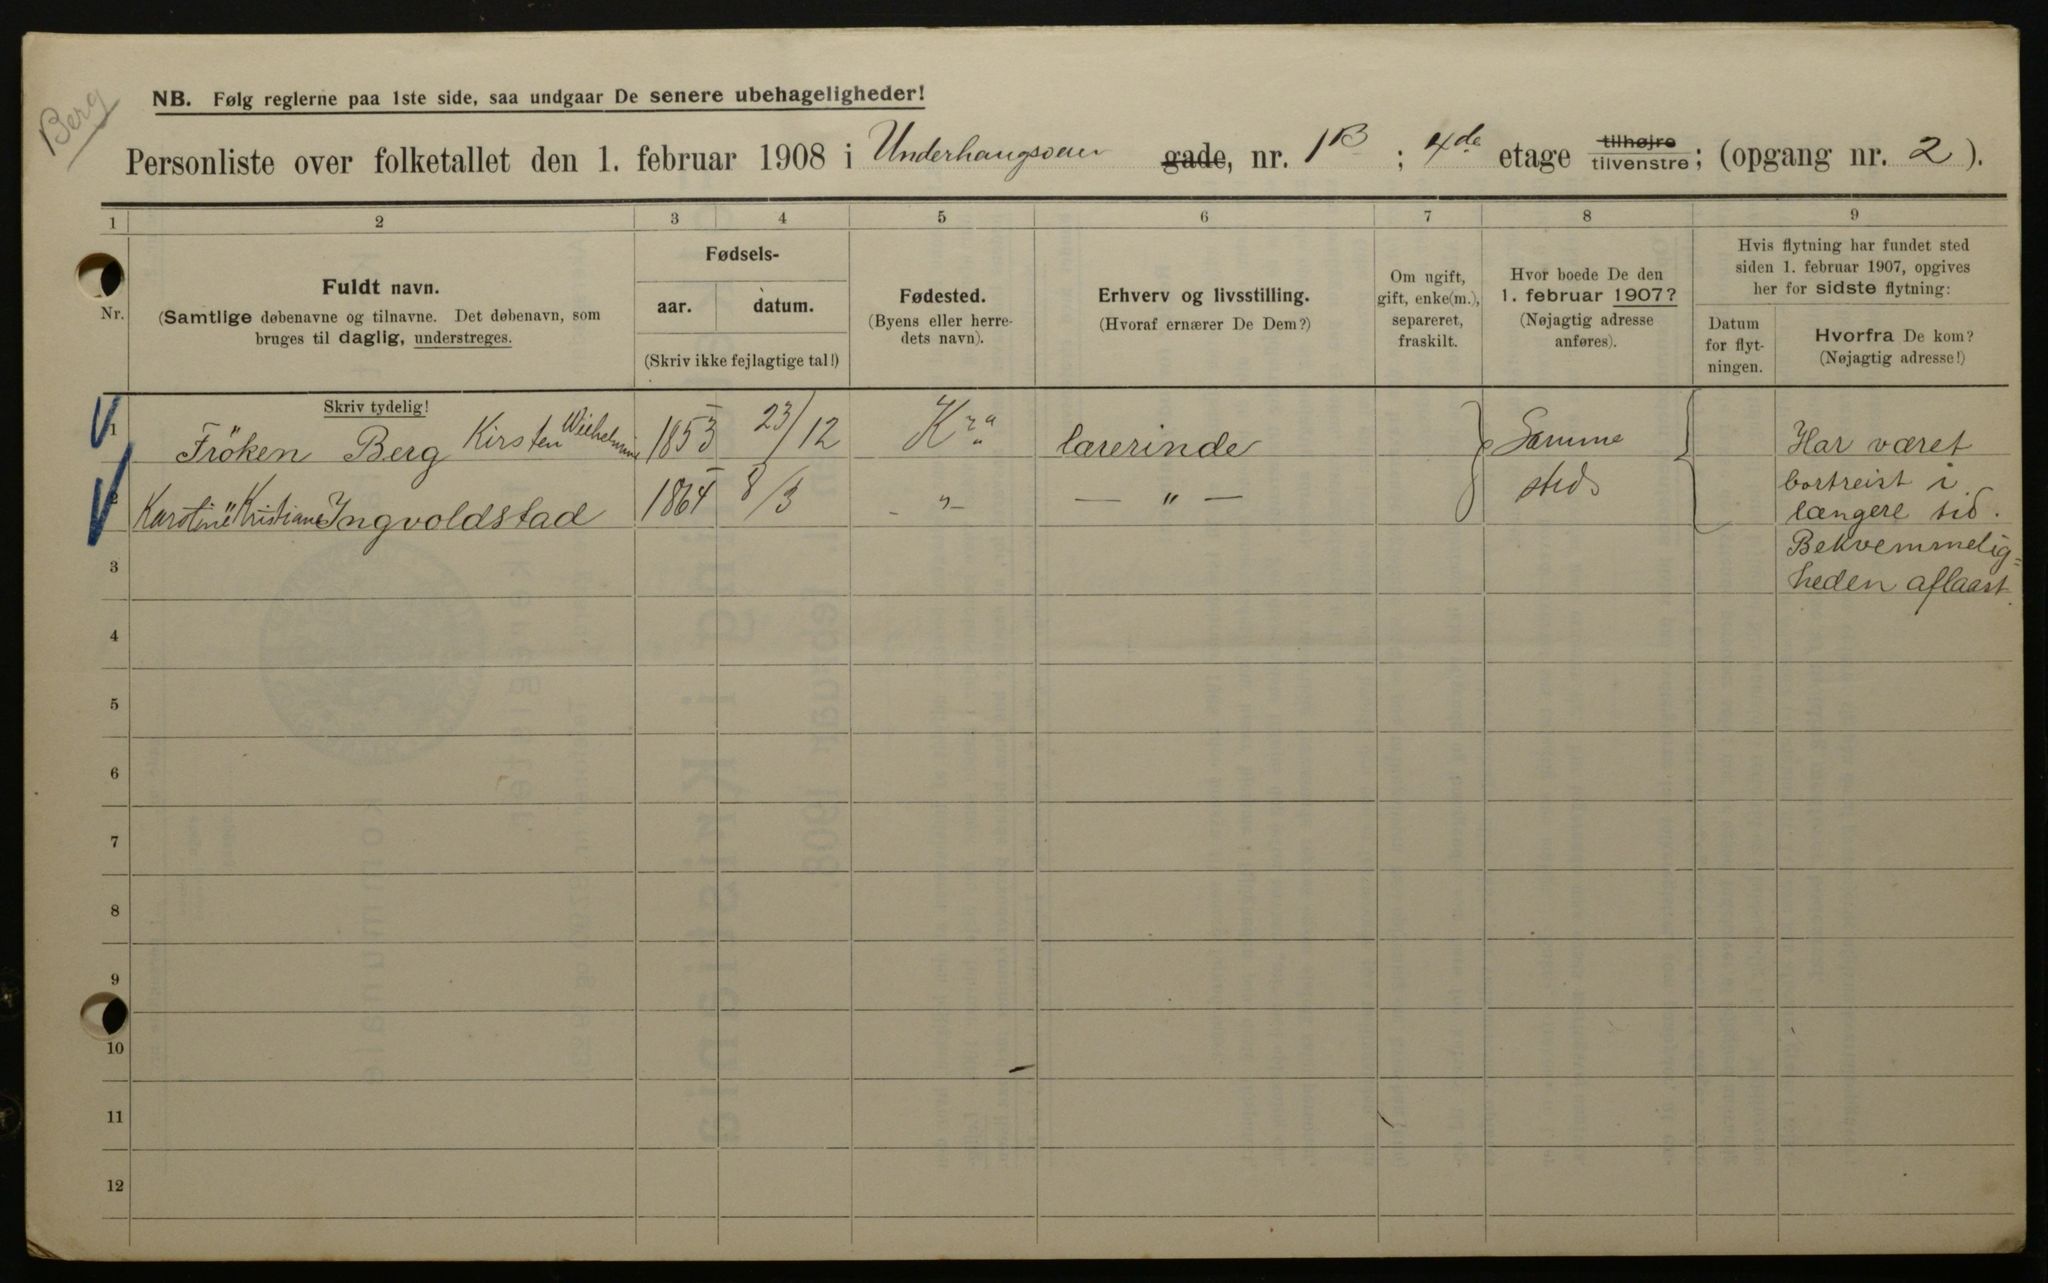 Berg
NB. Følg reglerne paa 1ste side, saa undgaar De senere ubehageligheder!
Personliste over folketallet den 1. februar 1908 i Underhaugsveien gade, nr. 1B ; 4de etage tilhøjre tilvenstre; (opgang nr. 2 ).
1 2 3 4 5 6 7 8 9
Nr.
Fuldt navn.
(Samtlige døbenavne og tilnavne. Det døbenavn, som
bruges til daglig, understreges.
Skriv tydelig!
Fødsels-
aar. datum.
(Skriv ikke fejlagtige tal!)
Fødested.
(Byens eller herre-
dets navn).
Erhverv og livsstilling.
(Hvoraf ernærer De Dem?)
Om ugift,
gift, enke(m.),
separeret,
fraskilt.
Hvor boede De den
1. februar 1907?
(Nøjagtig adresse
anføres).
Hvis flytning har fundet sted
siden 1. februar 1907, opgives
her for sidste flytning:
Datum
for flyt-
ningen.
Hvorfra De kom?
(Nøjagtig adresse!)
1 Fröken Berg Kirsten Wilhelmine 1853 23/12 Kra lærerinde Samme Har været
2 Karstine Kristiane Ingvoldstad 1864 8/3 - " - — " — sted bortreist i
længere tid.
3 Bekvemmelig=
heden aflaast.
4
5
6
7
8
9
10
11
12